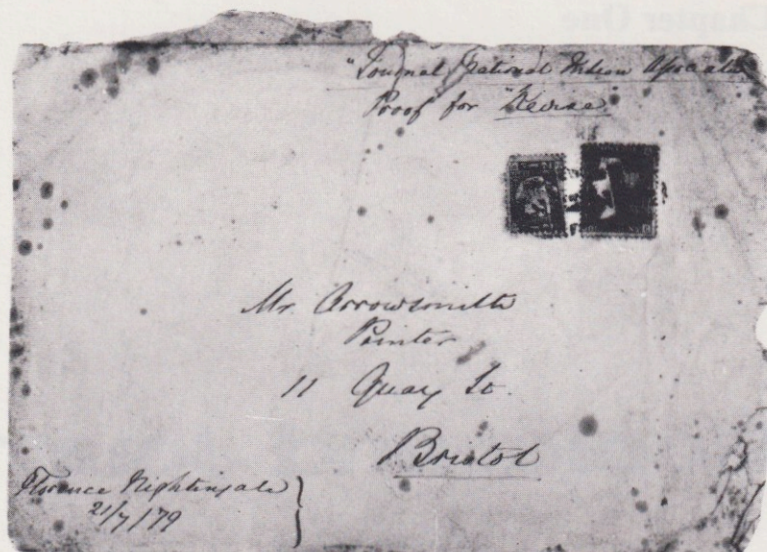 "Journal National Indian Association
Proof for "Revise"
Mr. Arrowsmith
Printer
11 Quay St.
Bristol
Florence Nightingale
21/7/79